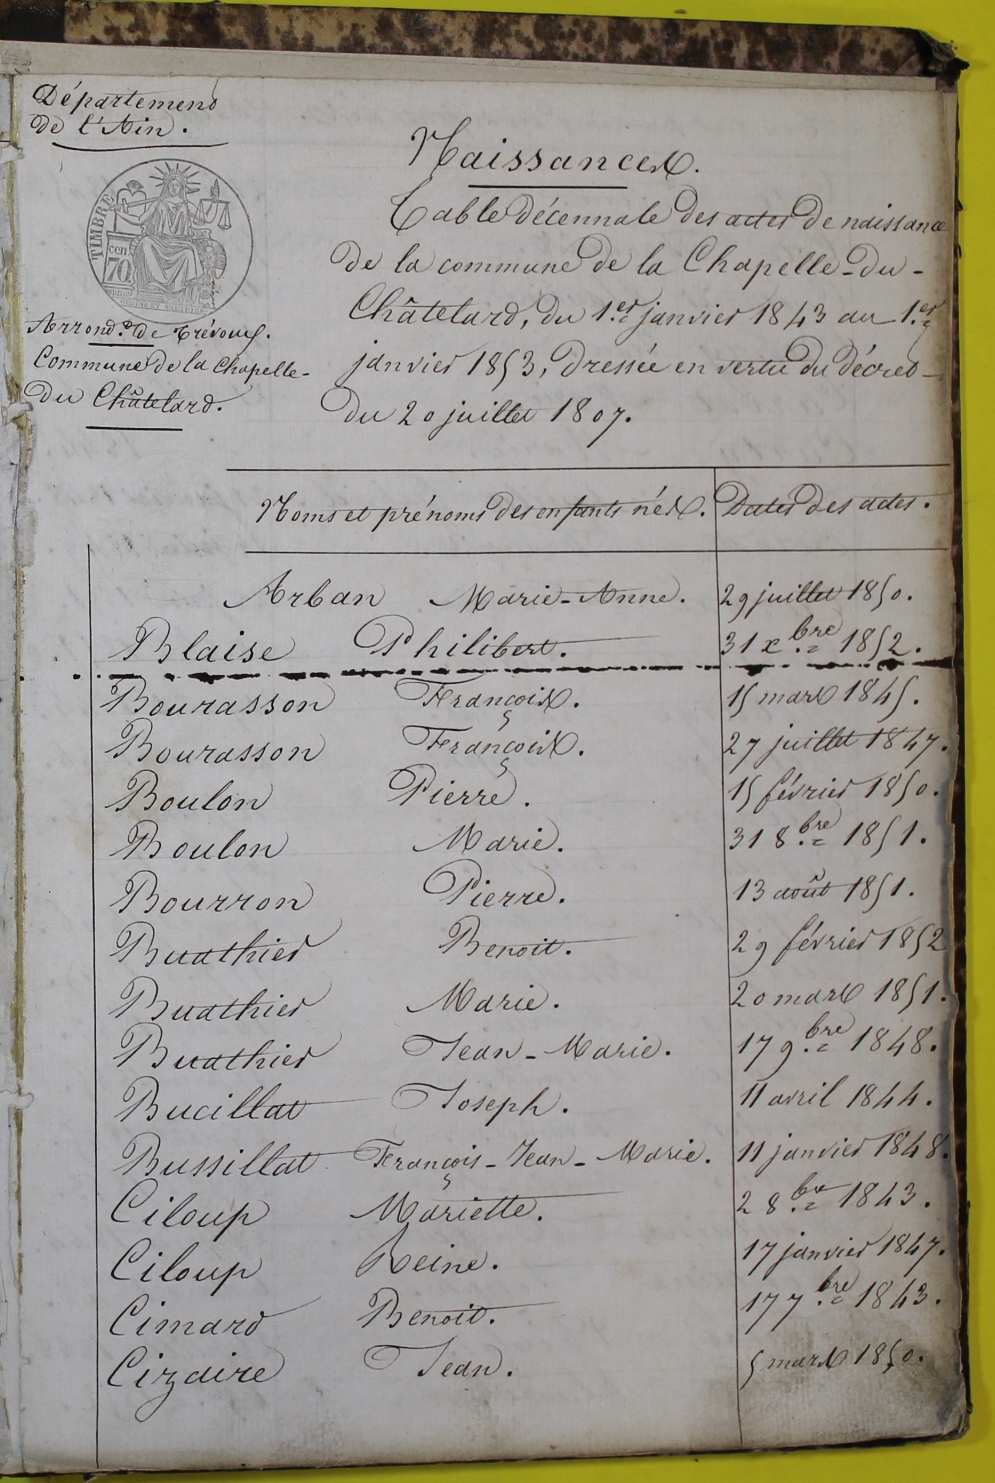 Département
de l'Ain.
TIMBRE
cen
70
Arrond.t de Trévoux.
Commune de la Chapelle-
du Châtelard.
Naissances.
Table décennale des actes de naissance
de la commune de la Chapelle-du-
Châtelard, du 1.er janvier 1843 au 1.er
janvier 1853, dressée en vertu du décret
du 20 juillet 1807.
Noms et prénoms des enfants nés. Dates des actes.
Arban Marie-Anne. 29 juillet 1850.
Blaise Philibert. 31 x.bre 1852.
Bourasson François. 15 mars 1845.
Bourasson François. 27 juillet 1847.
Boulon Pierre. 15 février 1850.
Boulon Marie. 31 8.bre 1851.
Bourron Pierre. 13 août 1851.
Buathier Benoit. 29 février 1852
Buathier Marie. 20 mars 1851.
Buathier Jean-Marie. 17 9.bre 1848.
Bucillat Joseph. 11 avril 1844.
Bussillat François-Jean-Marie. 11 janvier 1848.
Ciloup Mariette. 2 8.bre 1843.
Ciloup Reine. 17 janvier 1847.
Cimard Benoit. 17 7.bre 1843.
Cizaire Jean. 5 mars 1850.